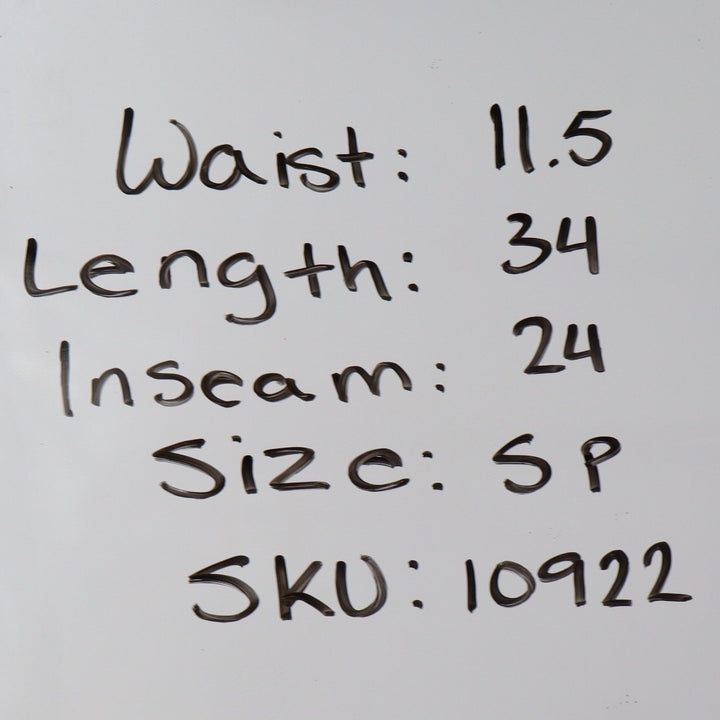 Waist: 11.5
Length: 34
Inseam: 24
Size: SP
SKU: 10922